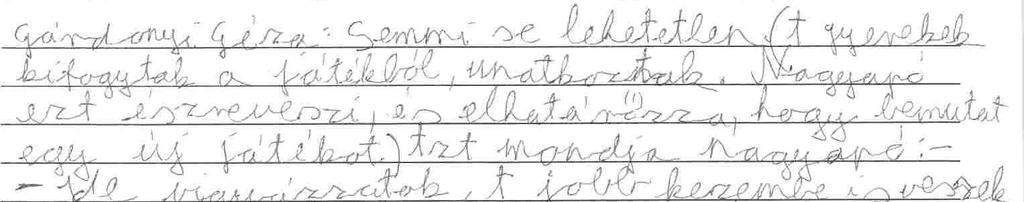 Gárdonyi Géza: Semmi se lehetetlen (A gyerekek
kifogytak a játékból, unatkoztak. Nagyapó
ezt észreveszi, és elhatározza, hogy bemutat
egy új játékot.) Azt mondja nagyapó: -
- Ide vigyázzatok, A jobb kezembe is veszek